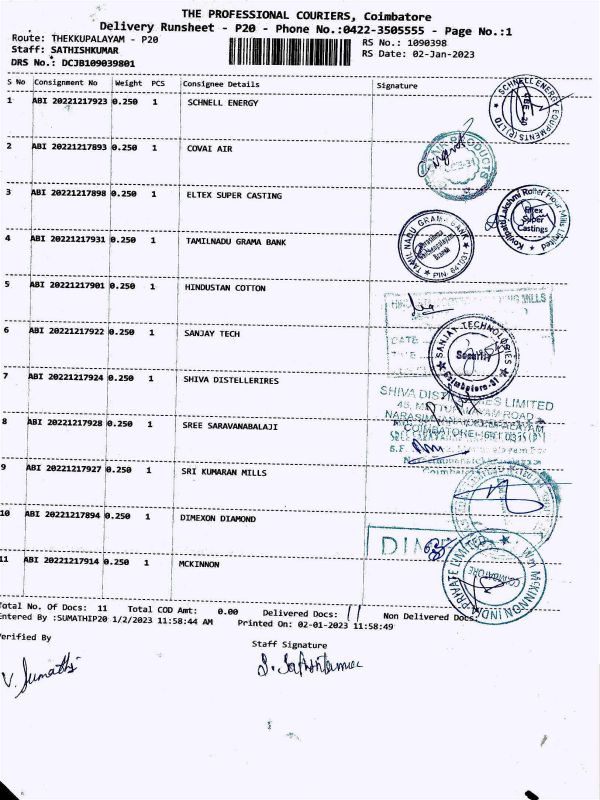 THE PROFESSIONAL COURIERS, Coimbatore
Delivery Runsheet - P20 - Phone No.:0422-3505555 - Page No.:1
Route: THEKKUPALAYAM - P20
RS No.: 1090398
Staff: SATHISHKUMAR
RS Date: 02-Jan-2023
DRS No.: DCJB109039801
S No Consignment No Weight PCS Consignee Details Signature
1 ABI 20221217923 0.250 1 SCHNELL ENERGY
SCHNELL ENERGY EQUIPMENTS (P) LTD
2 ABI 20221217893 0.250 1 COVAI AIR
PRODUCTS
3 ABI 20221217898 0.250 1 ELTEX SUPER CASTING
Kovilpatti Lakshmi Roller Flour Mills Limited
Eltex
Super
Castings
4 ABI 20221217931 0.250 1 TAMILNADU GRAMA BANK
TAMIL NADU GRAMA BANK
5 ABI 20221217901 0.250 1 HINDUSTAN COTTON
MILLS
DATE
6 ABI 20221217922 0.250 1 SANJAY TECH
SANJAY TECHNOLOGIES
Security
Coimbatore-31
7 ABI 20221217924 0.250 1 SHIVA DISTELLERIRES
SHIVA DISTILLERIES LIMITED
8 ABI 20221217928 0.250 1 SREE SARAVANABALAJI
COIMBATORE
9 ABI 20221217927 0.250 1 SRI KUMARAN MILLS
10 ABI 20221217894 0.250 1 DIMEXON DIAMOND
DIM
11 ABI 20221217914 0.250 1 MCKINNON
Wm MCKINNON INDIA PRIVATE LIMITED
COIMBATORE
Total No. Of Docs: 11 Total COD Amt: 0.00 Delivered Docs: 11 Non Delivered Docs:
Entered By :SUMATHIP20 1/2/2023 11:58:44 AM Printed On: 02-01-2023 11:58:49
Verified By
Staff Signature
V. Sumathi